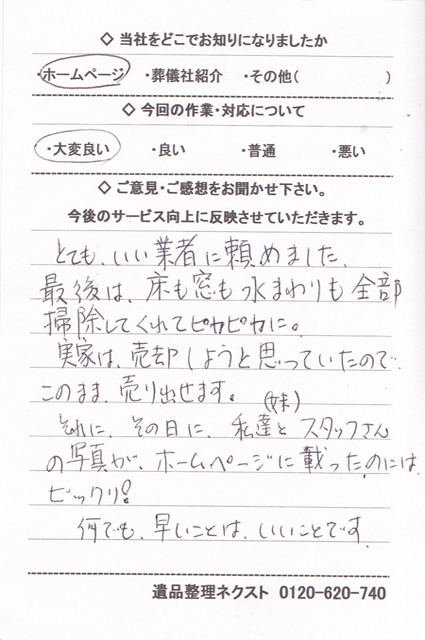 ◇ 当社をどこでお知りになりましたか
・ホームページ ・葬儀社紹介 ・その他( )
◇ 今回の作業・対応について
・大変良い ・良い ・普通 ・悪い
◇ ご意見・ご感想をお聞かせ下さい。
今後のサービス向上に反映させていただきます。
とても、いい業者に頼めました。
最後は、床も窓も水まわりも全部
掃除してくれてピカピカに。
実家は、売却しようと思っていたので
このまま、売り出せます。
(妹)
それに、その日に、私達とスタッフさん
の写真が、ホームページに載ったのには
ビックリ!
何でも、早いことは、いいことです。
遺品整理ネクスト 0120-620-740